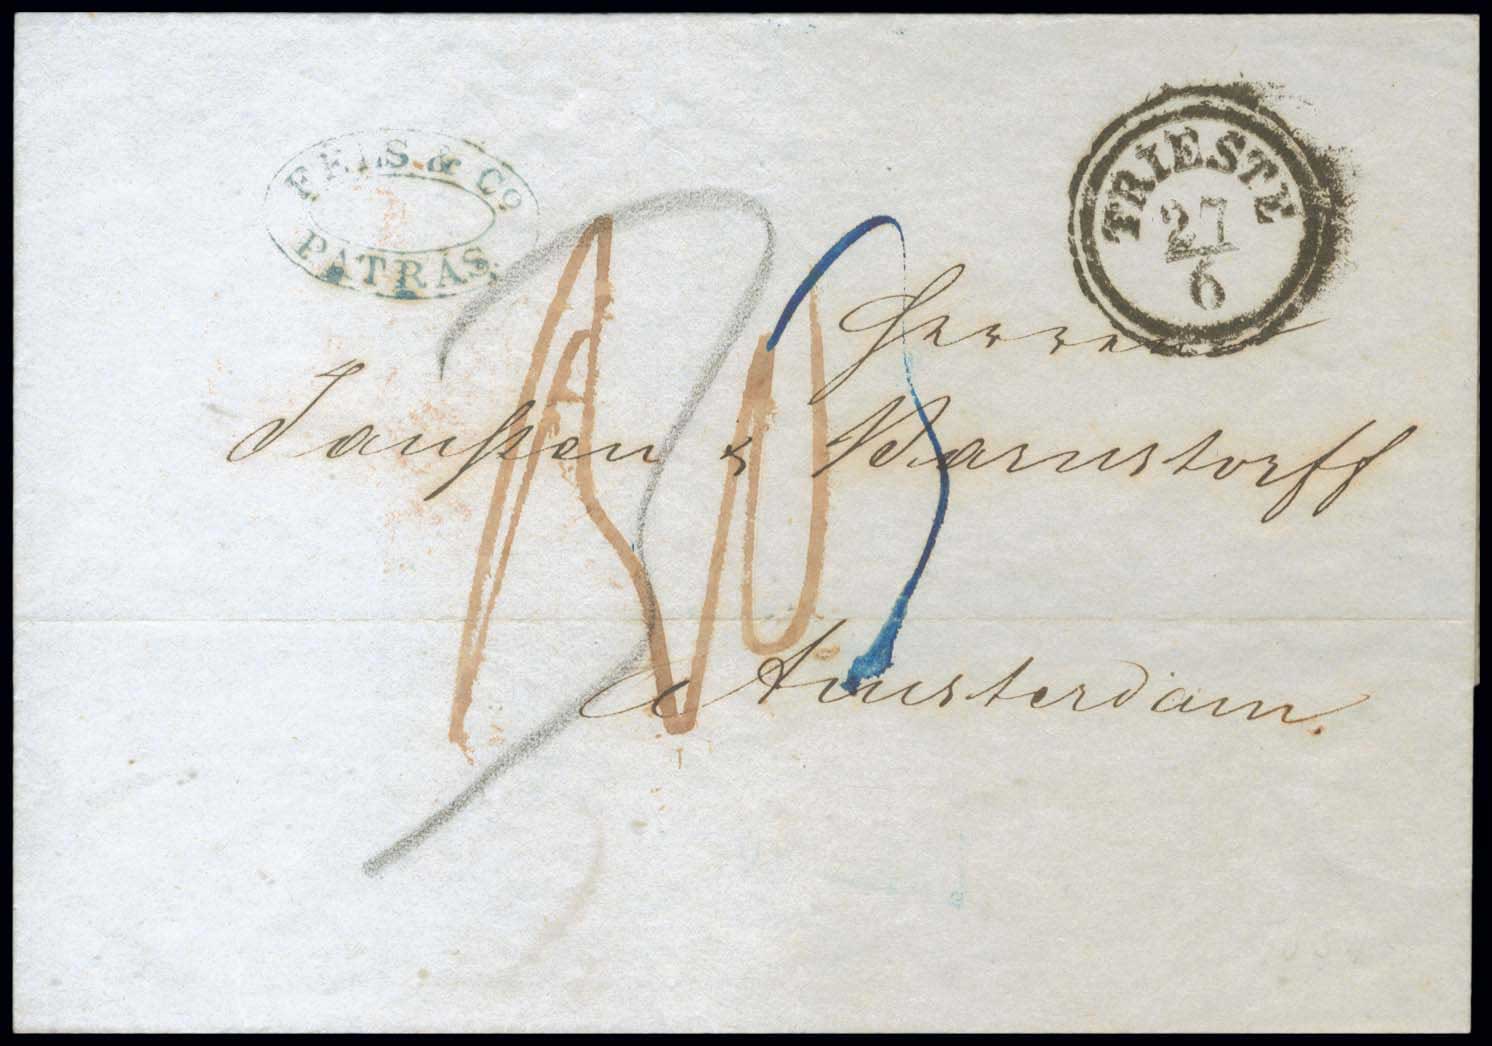 FELS & Co.
PATRAS.
TRIESTE
27
6
Herren
Janssen & Barnstorff
Amsterdam.